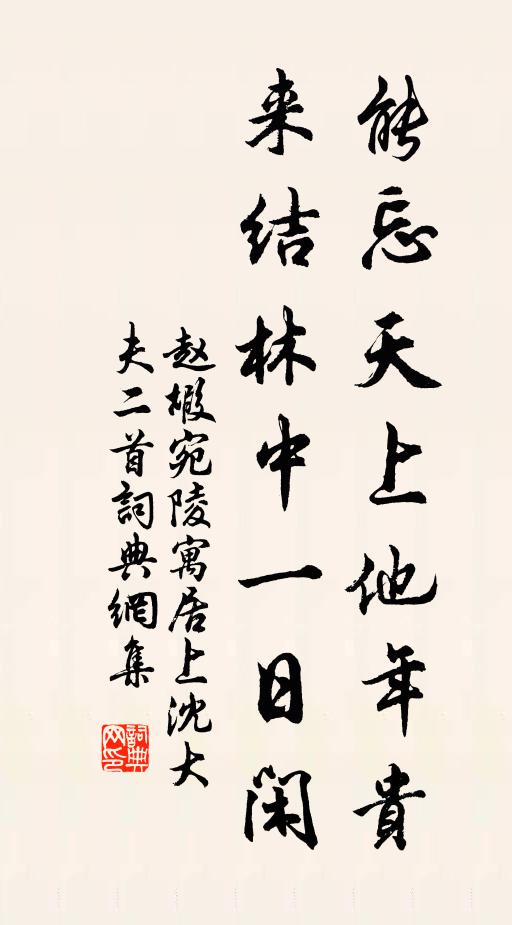 能忘天上他年貴
来结林中一日闲
赵嘏宛陵寓居上沈大
夫二首詞典網集
詞典
网印